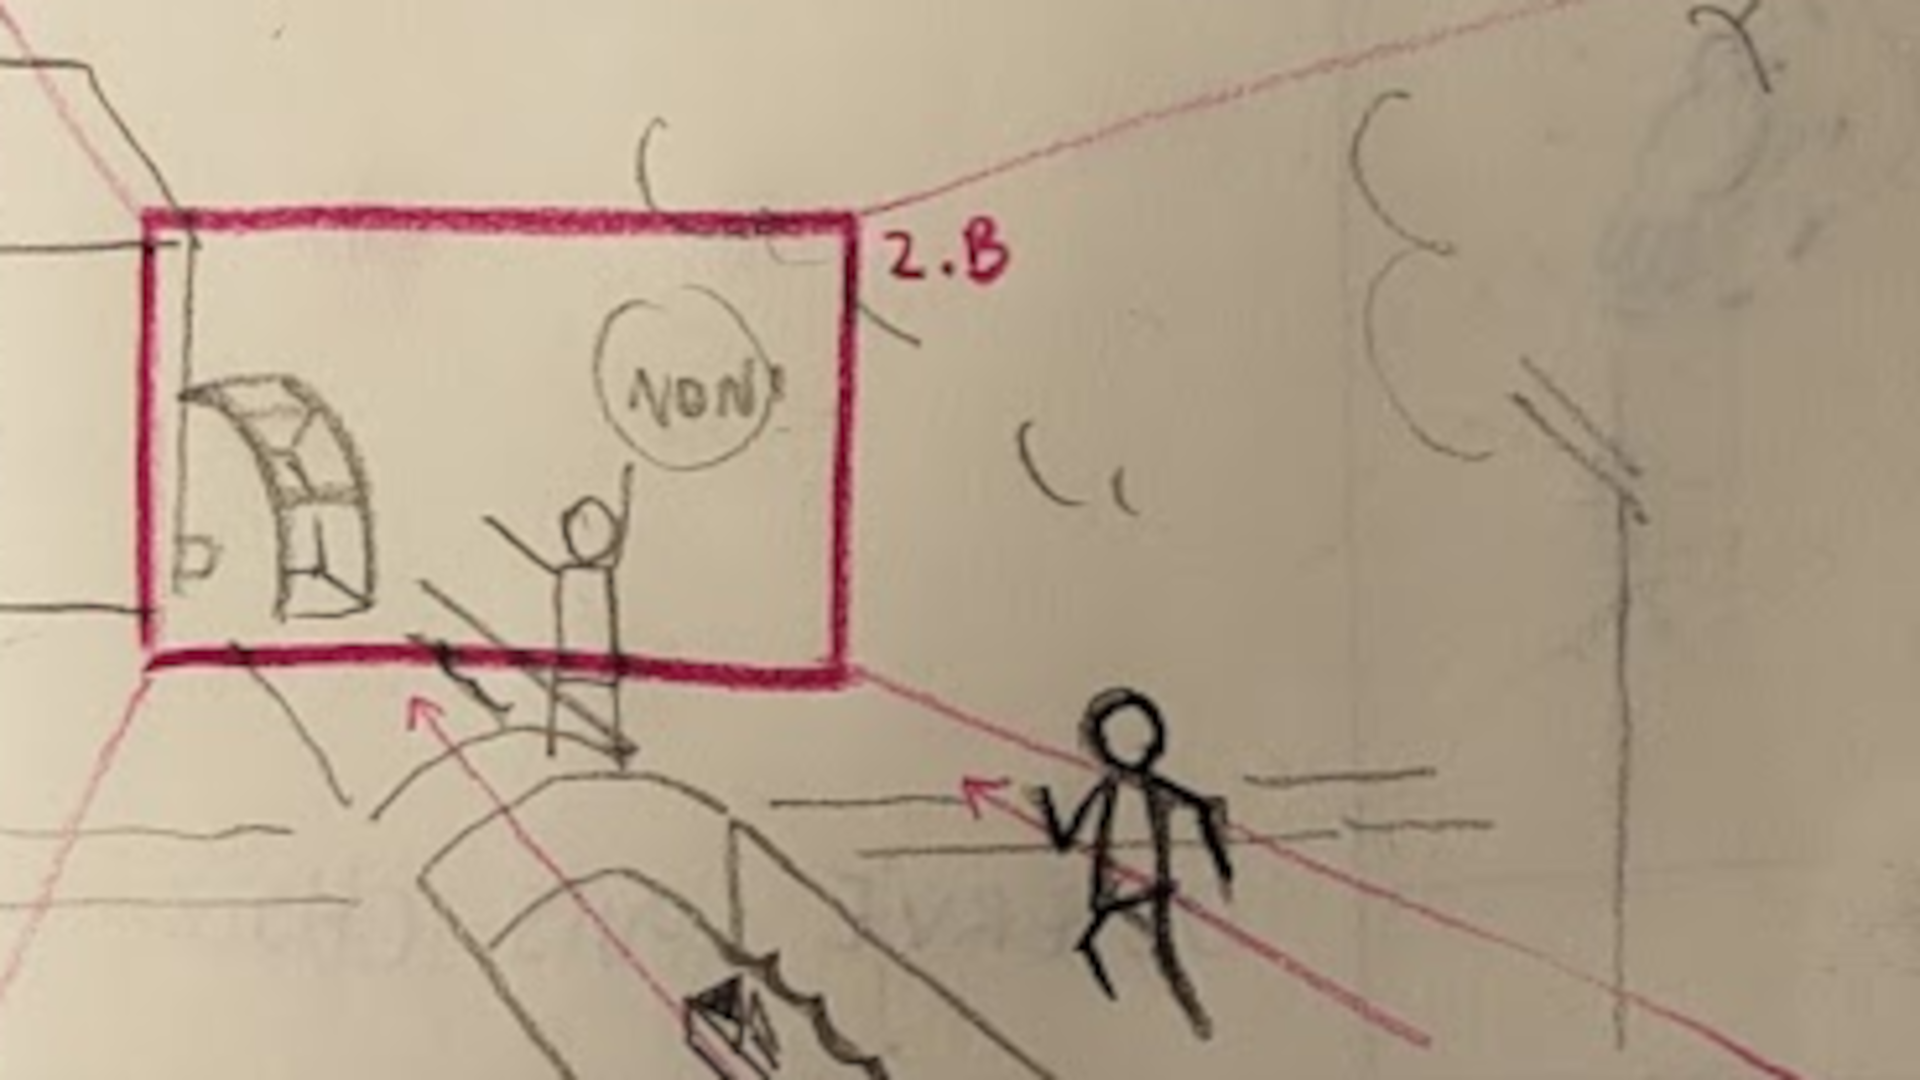 2.B
NON!